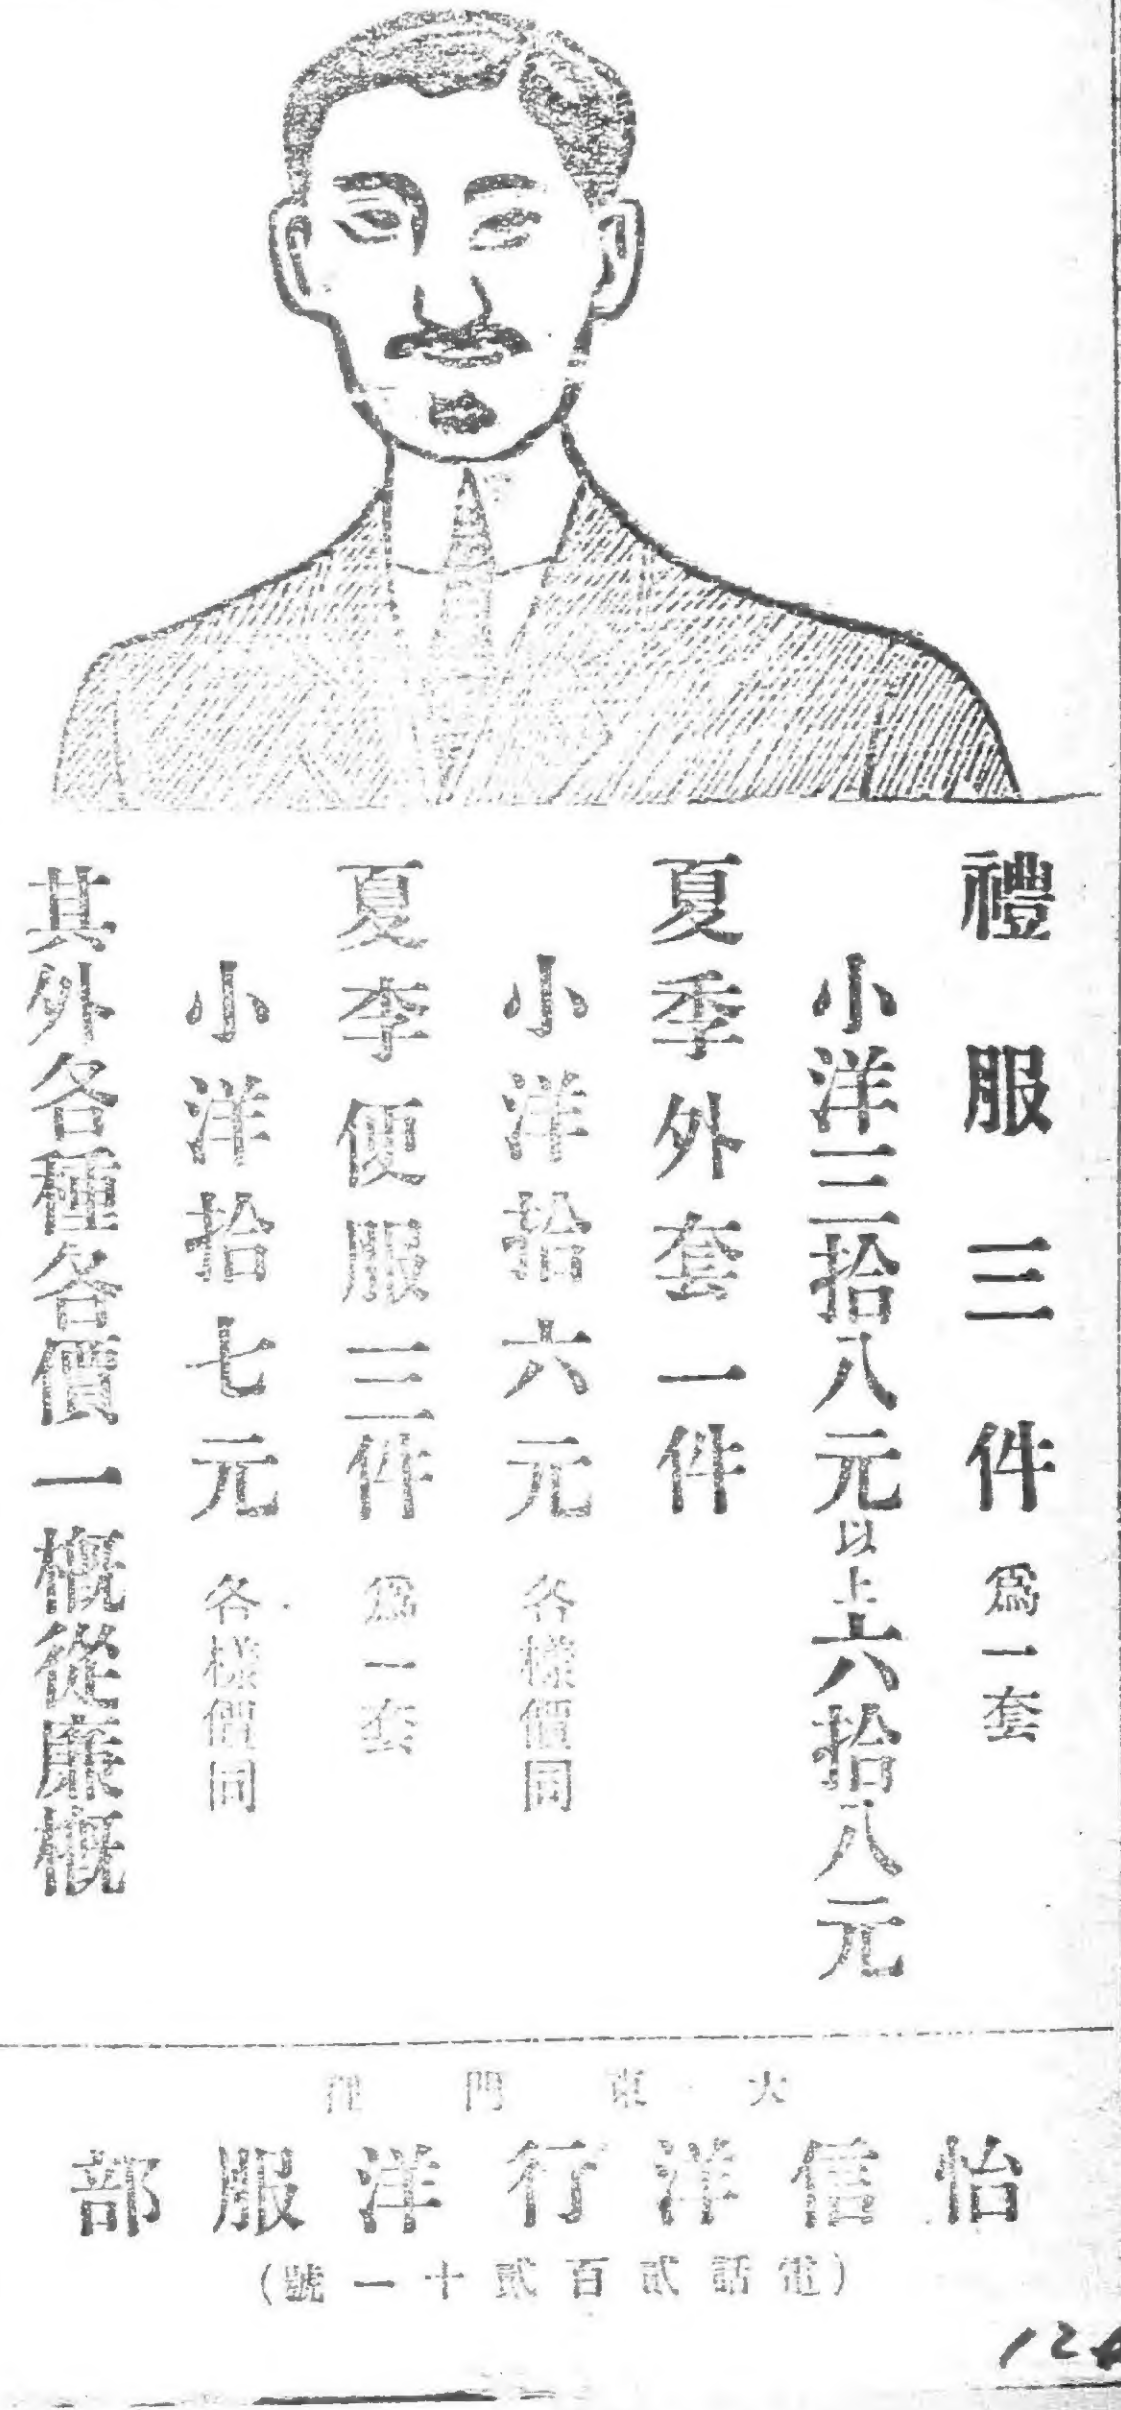 禮服三件爲一套
小洋三拾八元以上六拾八元
夏季外套一件
小洋拾六元各樣價同
夏李便服三件爲一套
小洋拾七元各樣價同
其外各種各價一概從廉概
大東門裡
怡信洋行洋服部
(電話貳百貳十一號)